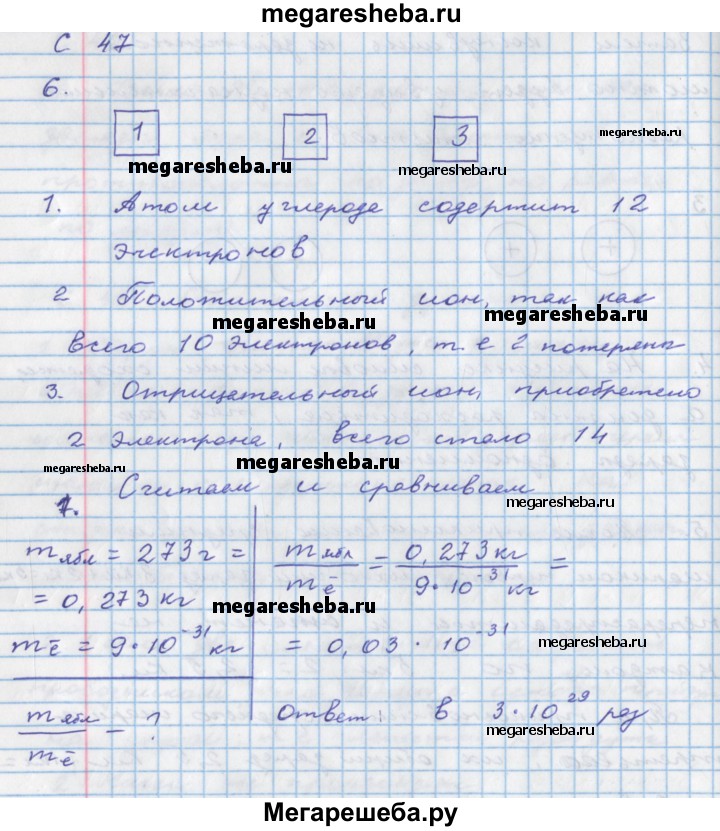 megaresheba.ru
С 47
6.
1 2 3
megaresheba.ru
megaresheba.ru
megaresheba.ru
1. Атом углерода содержит 12
электронов
2 Положительный ион, так как
megaresheba.ru
megaresheba.ru
всего 10 электронов, т.е 2 потеряны
3. Отрицательный ион, приобретено
2 электрона, всего стало 14
megaresheba.ru
megaresheba.ru
Считаем и сравниваем
megaresheba.ru
7.
m ябл = 273 г =
= 0,273 кг
megaresheba.ru
m ē = 9·10⁻³¹ кг
m ябл / m ē = ?
m ябл / m ē = 0,273 кг / 9·10⁻³¹ кг =
= 0,03 · 10⁻³¹
megaresheba.ru
Ответ: в 3·10²⁹ раз
megaresheba.ru
Мегарешеба.ру